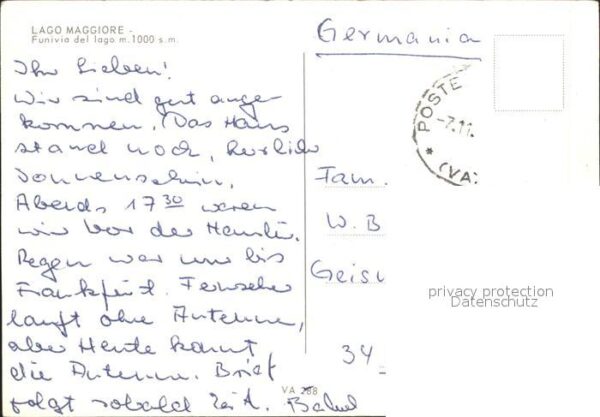 LAGO MAGGIORE -
Funivia del lago m.1000 s.m.
Ihr Lieben!
Wir sind gut ange
kommen. Das Haus
stand noch, herrlich
Sonnenschein.
Abends 17 30 waren
wir vor der Haustür.
Regen war nur bis
Frankfurt. Fernseher
läuft ohne Antenne,
aber Heute kommt
die Antenne. Brief
folgt sobald Zeit.
VA 288
Germania
POSTE
-7.11.
* (VA)
Fam.
W. B
Geisu
34-
privacy protection
Datenschutz